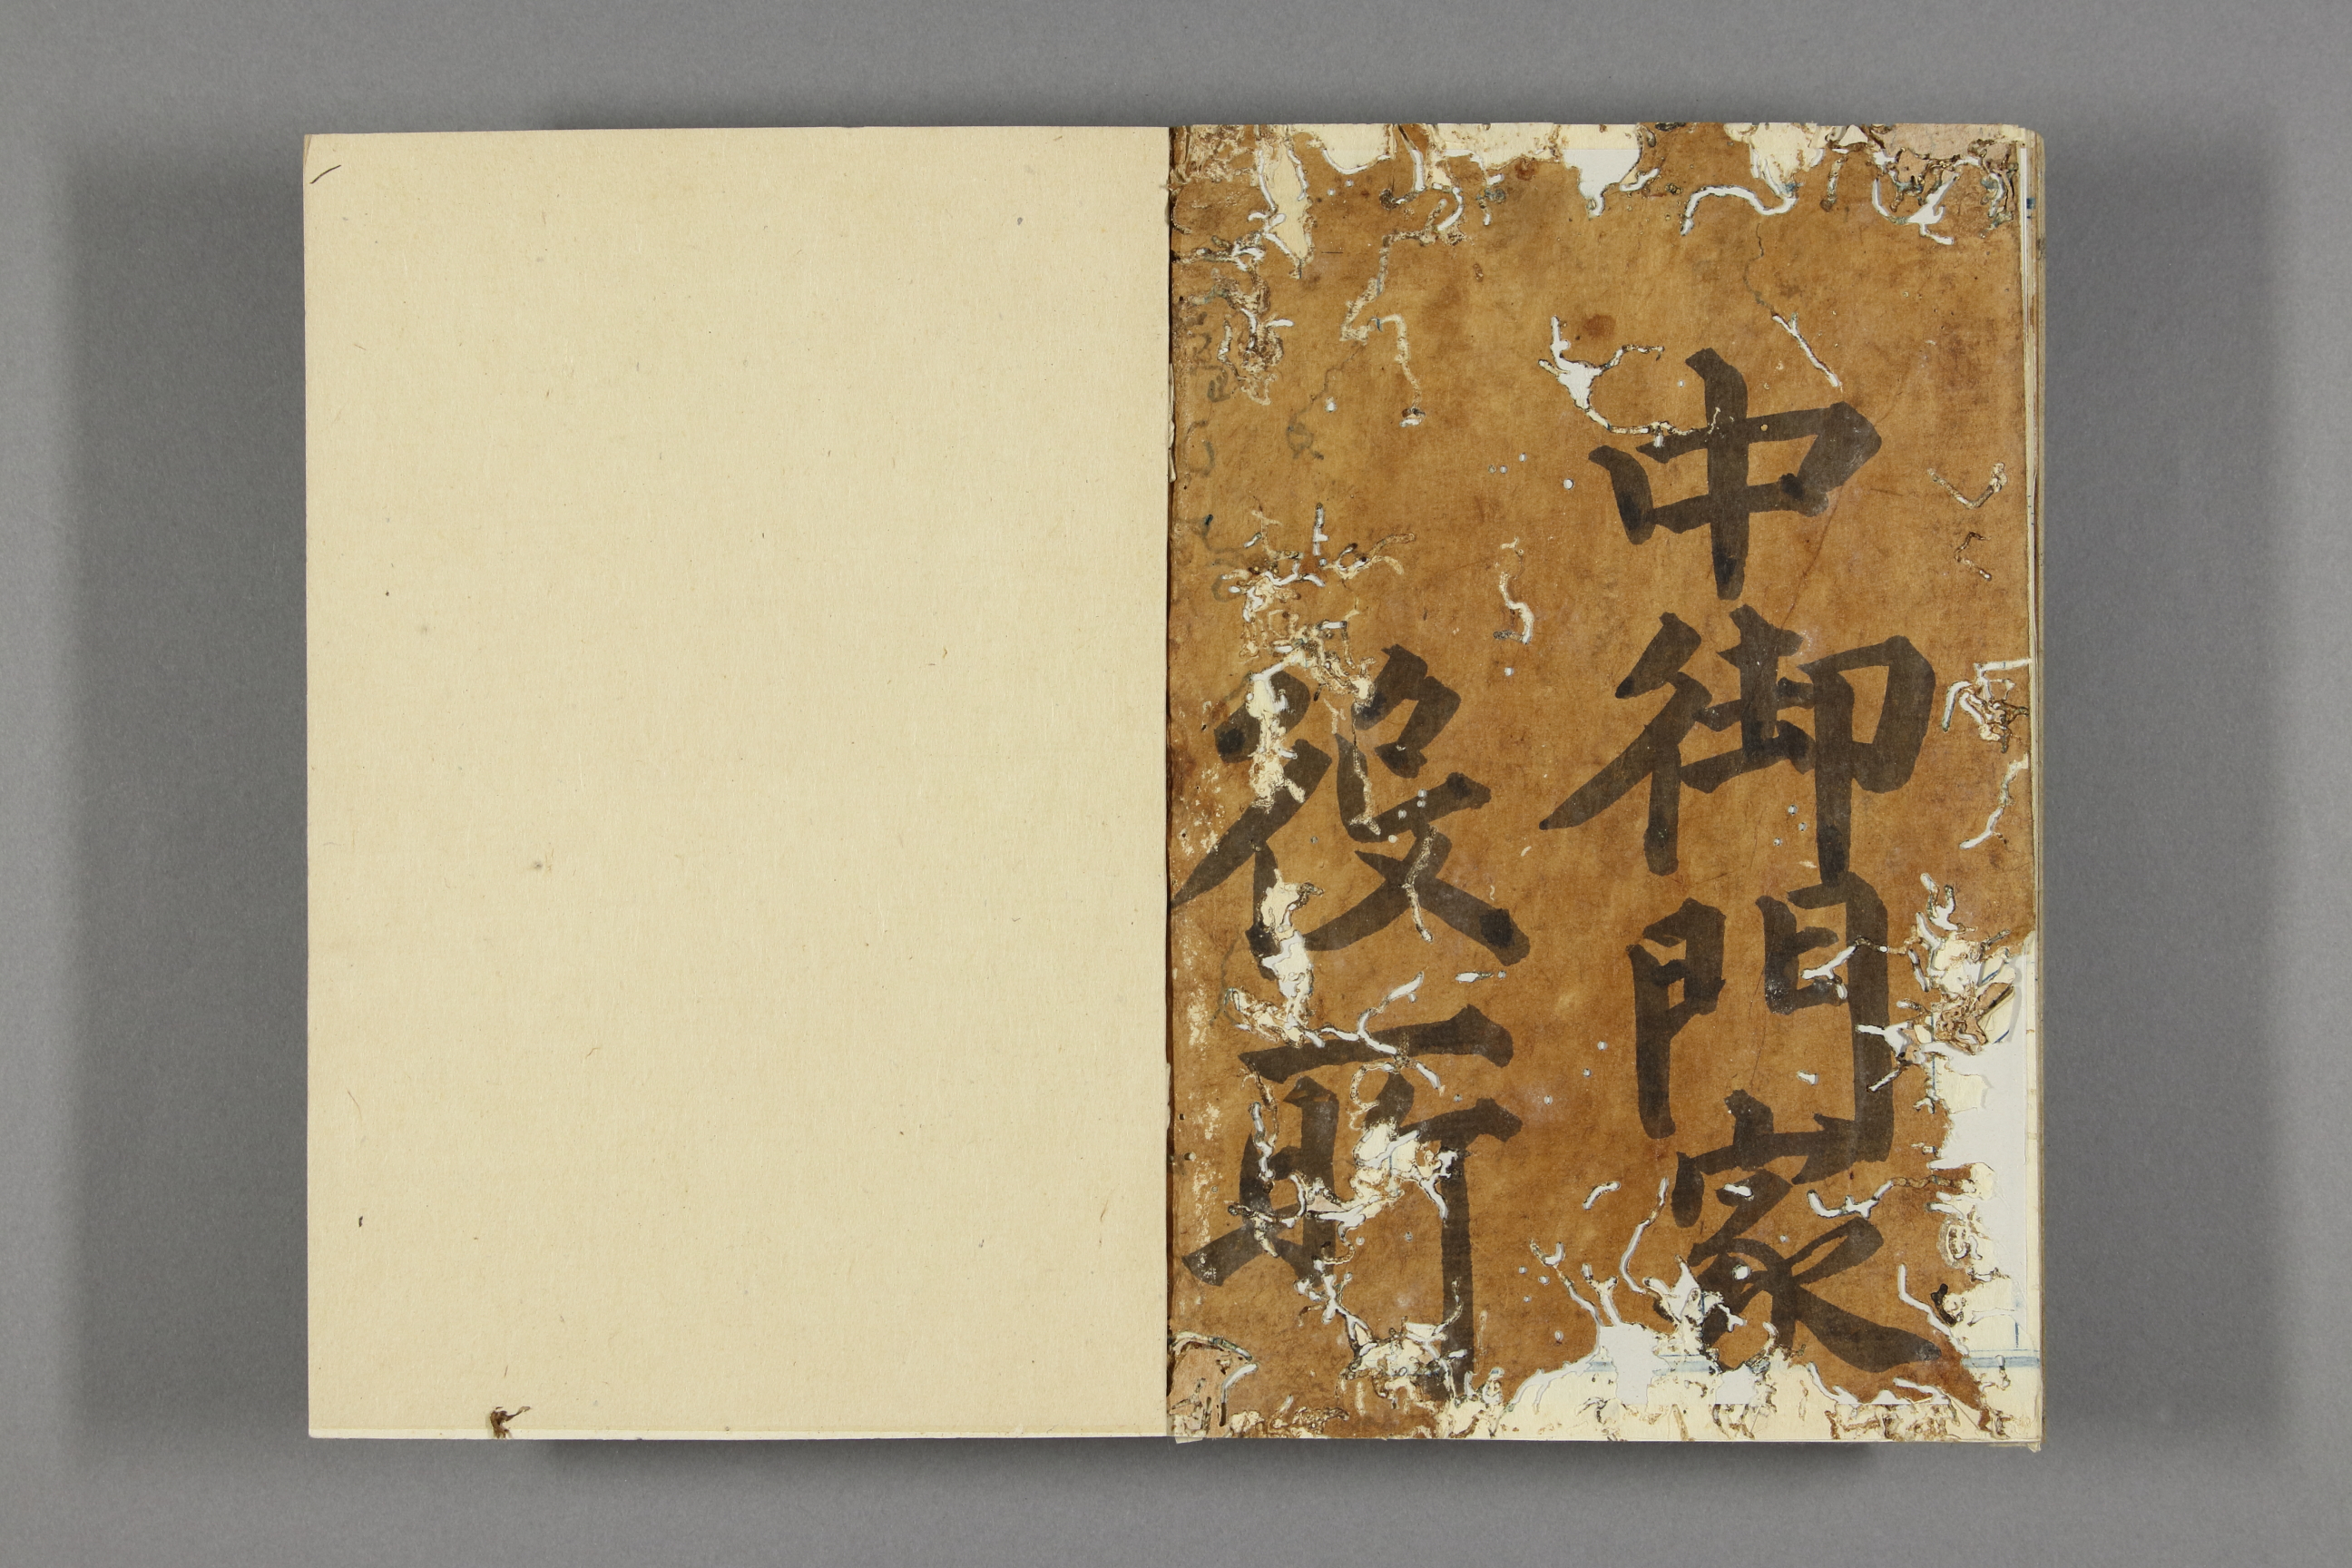 中御門家
役所